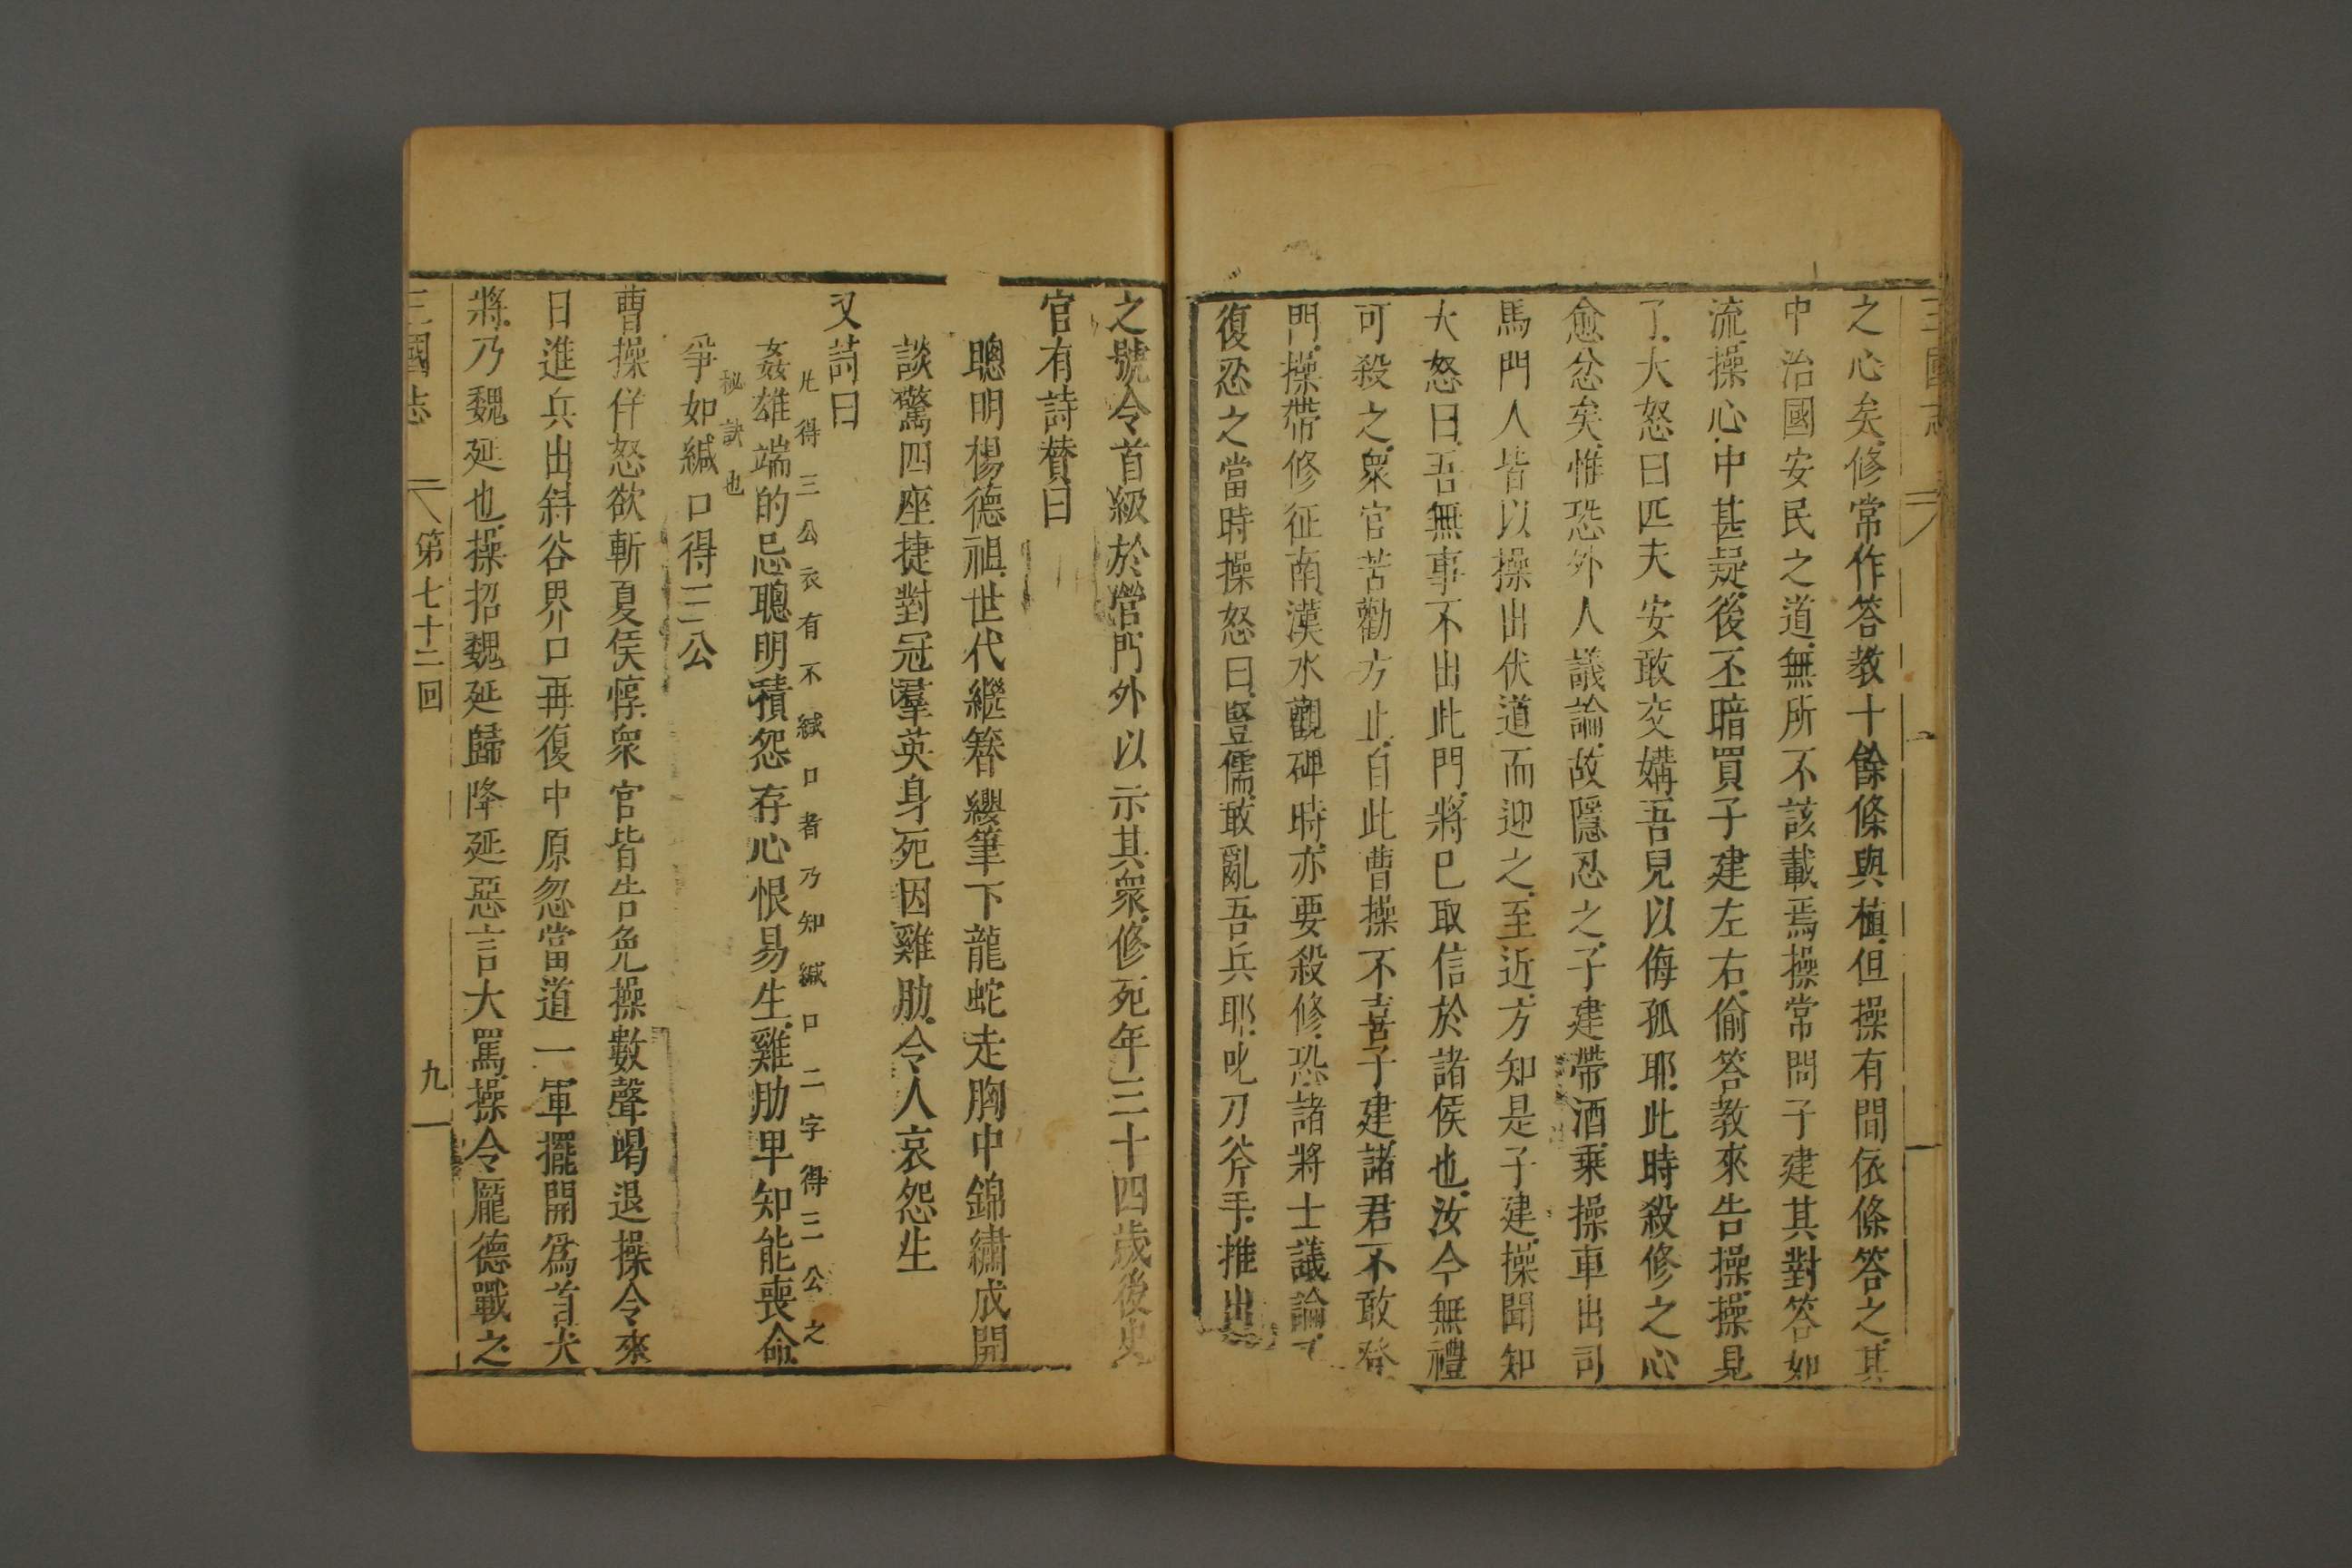 三國志
之心矣修常作答教十餘條與植但操有間依條答之其
中治國安民之道無所不該載焉操常問子建其對答如
流操心中甚疑後丕暗買子建左右偷答教來告操操見
了大怒曰匹夫安敢交媾吾兒以侮孤耶此時殺修之心
愈忿矣惟恐外人議論故隱忍之子建帶酒乘操車出司
馬門人皆以操出伏道而迎之至近方知是子建操聞知
大怒曰吾無事不出此門將已取信於諸侯也汝今無禮
可殺之衆官苦勸方止自此曹操不喜子建諸君不敢發
門操帶修征南漢水觀碑時亦要殺修恐諸將士議論
復忍之當時操怒曰豎儒敢亂吾兵耶叱刀斧手推出
之號令首級於營門外以示其衆修死年三十四歲後史
官有詩贊曰
聰明楊德祖世代繼簪纓筆下龍蛇走胸中錦繡成開
談驚四座捷對冠羣英身死因雞肋令人哀怨生
又詩曰
姦雄端的忌聰明積怨存心恨易生雞肋早知能喪命
爭如緘口得三公
凡得三公衣有不緘口者乃知緘口二字得三公之
秘訣也
曹操佯怒欲斬夏侯惇衆官皆告免操數聲喝退操令來
日進兵出斜谷界口再復中原忽當道一軍擺開爲首大
將乃魏延也操招魏延歸降延惡言大罵操令龐德戰之
三國志 第七十二回 九